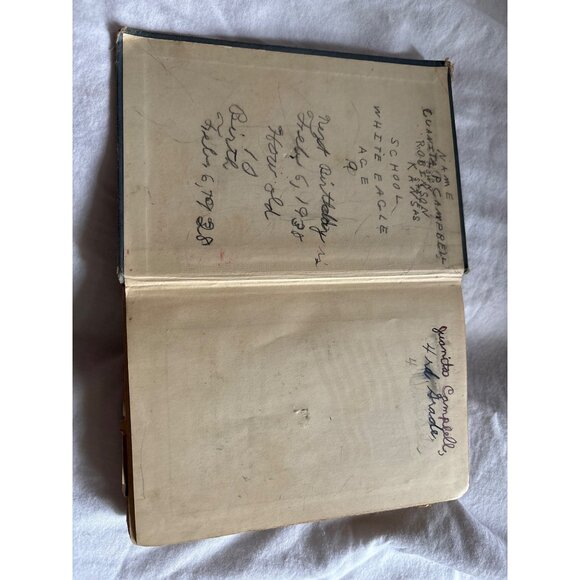 NAME
JUANITA B CAMPBELL
ROBINSON
KANSAS
SCHOOL
WHITE EAGLE
AGE
9
Next Birthday is
Feby 6, 1938
How old
10
Birth
Feby 6, 1928
Juanita Campbell,
4 rd. Grade,
4